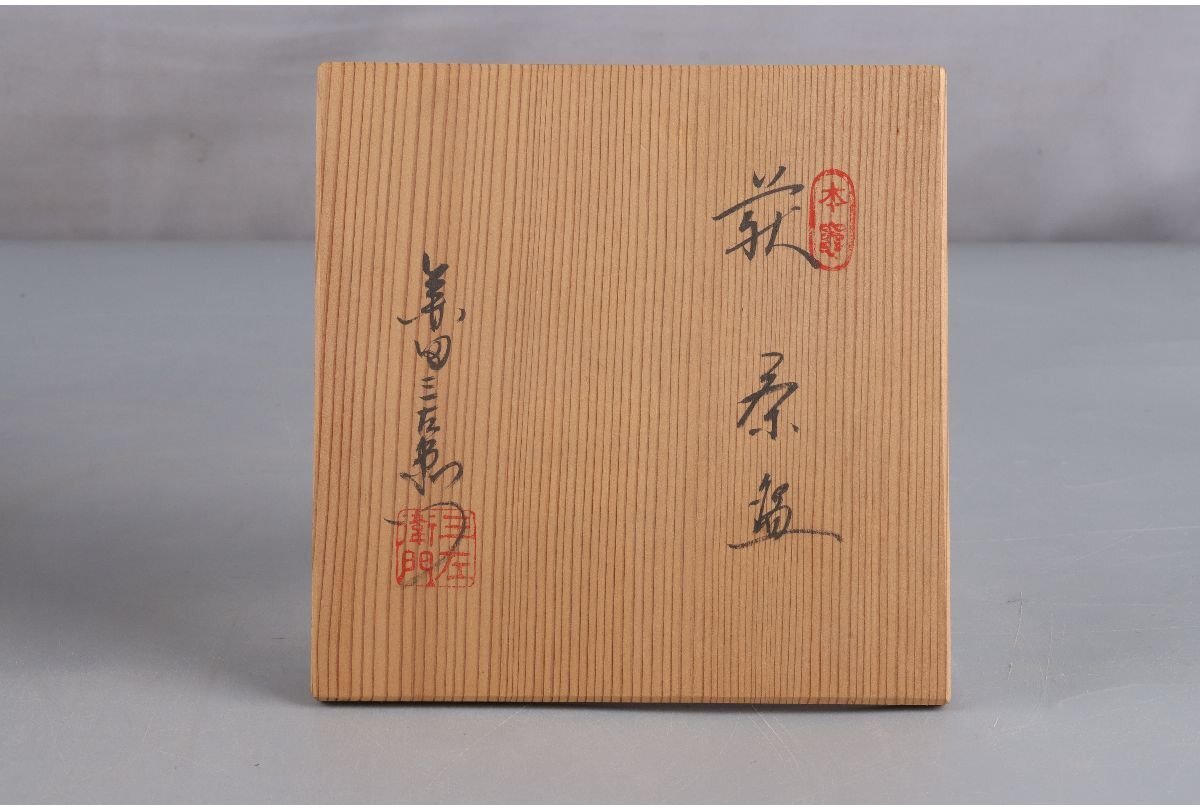 本
萩茶盌
兼田三左衛門
三左
衛門